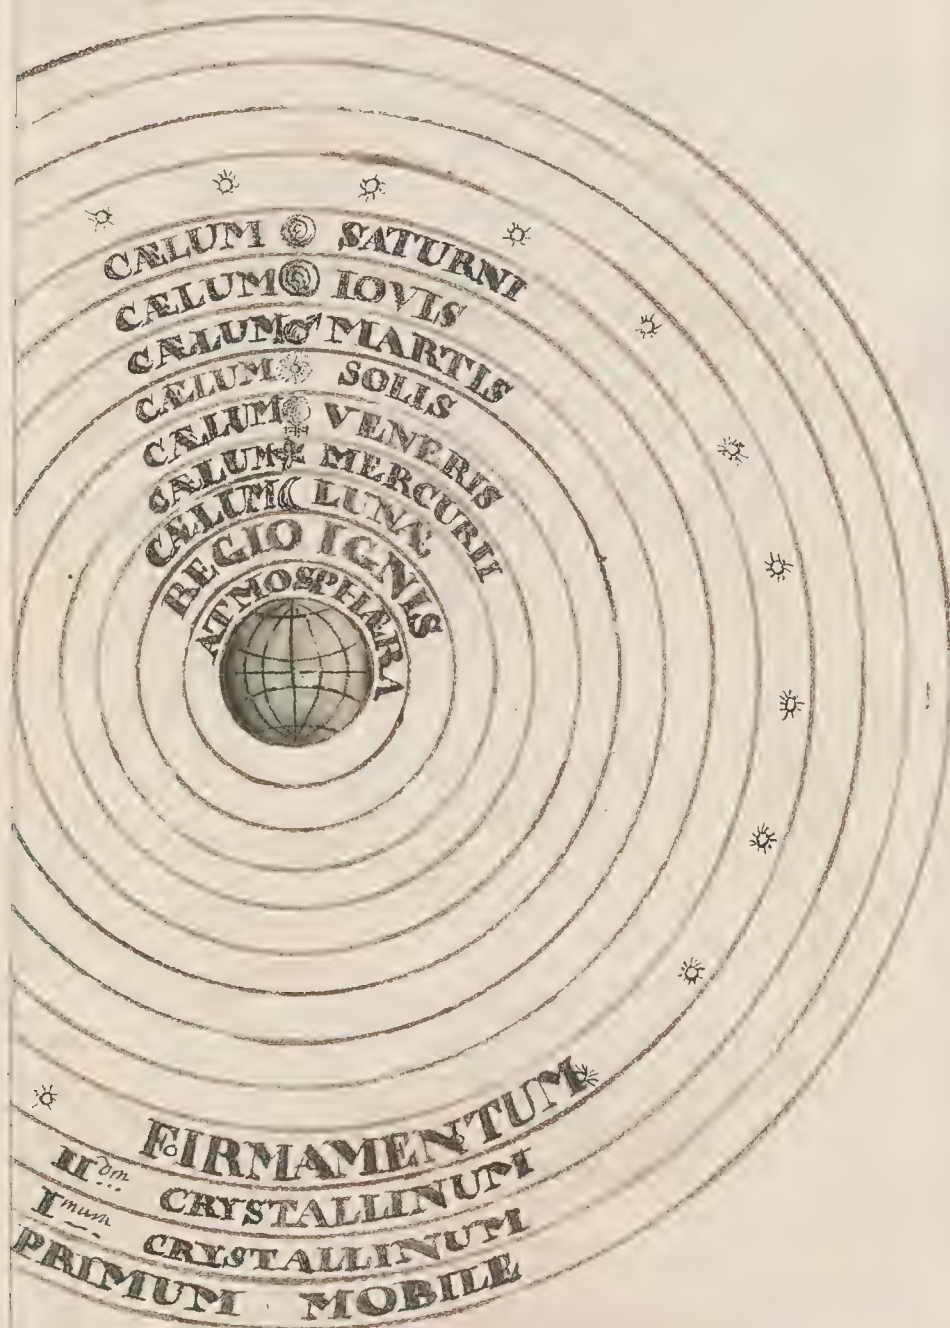 CÆLUM SATURNI
CÆLUM IOVIS
CÆLUM MARTIS
CÆLUM SOLIS
CÆLUM VENERIS
CÆLUM MERCURII
CÆLUM LUNÆ
REGIO IGNIS
ATMOSPHÆRA
FIRMAMENTUM
II.dm CRYSTALLINUM
I.mum CRYSTALLINUM
PRIMUM MOBILE